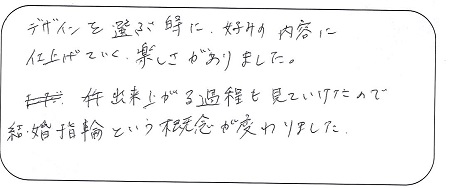 デザインを選ぶ時に、好みの内容に
仕上げていく、楽しさがありました。
出来上がる過程も見ていけたので
結婚指輪という概念が変わりました。